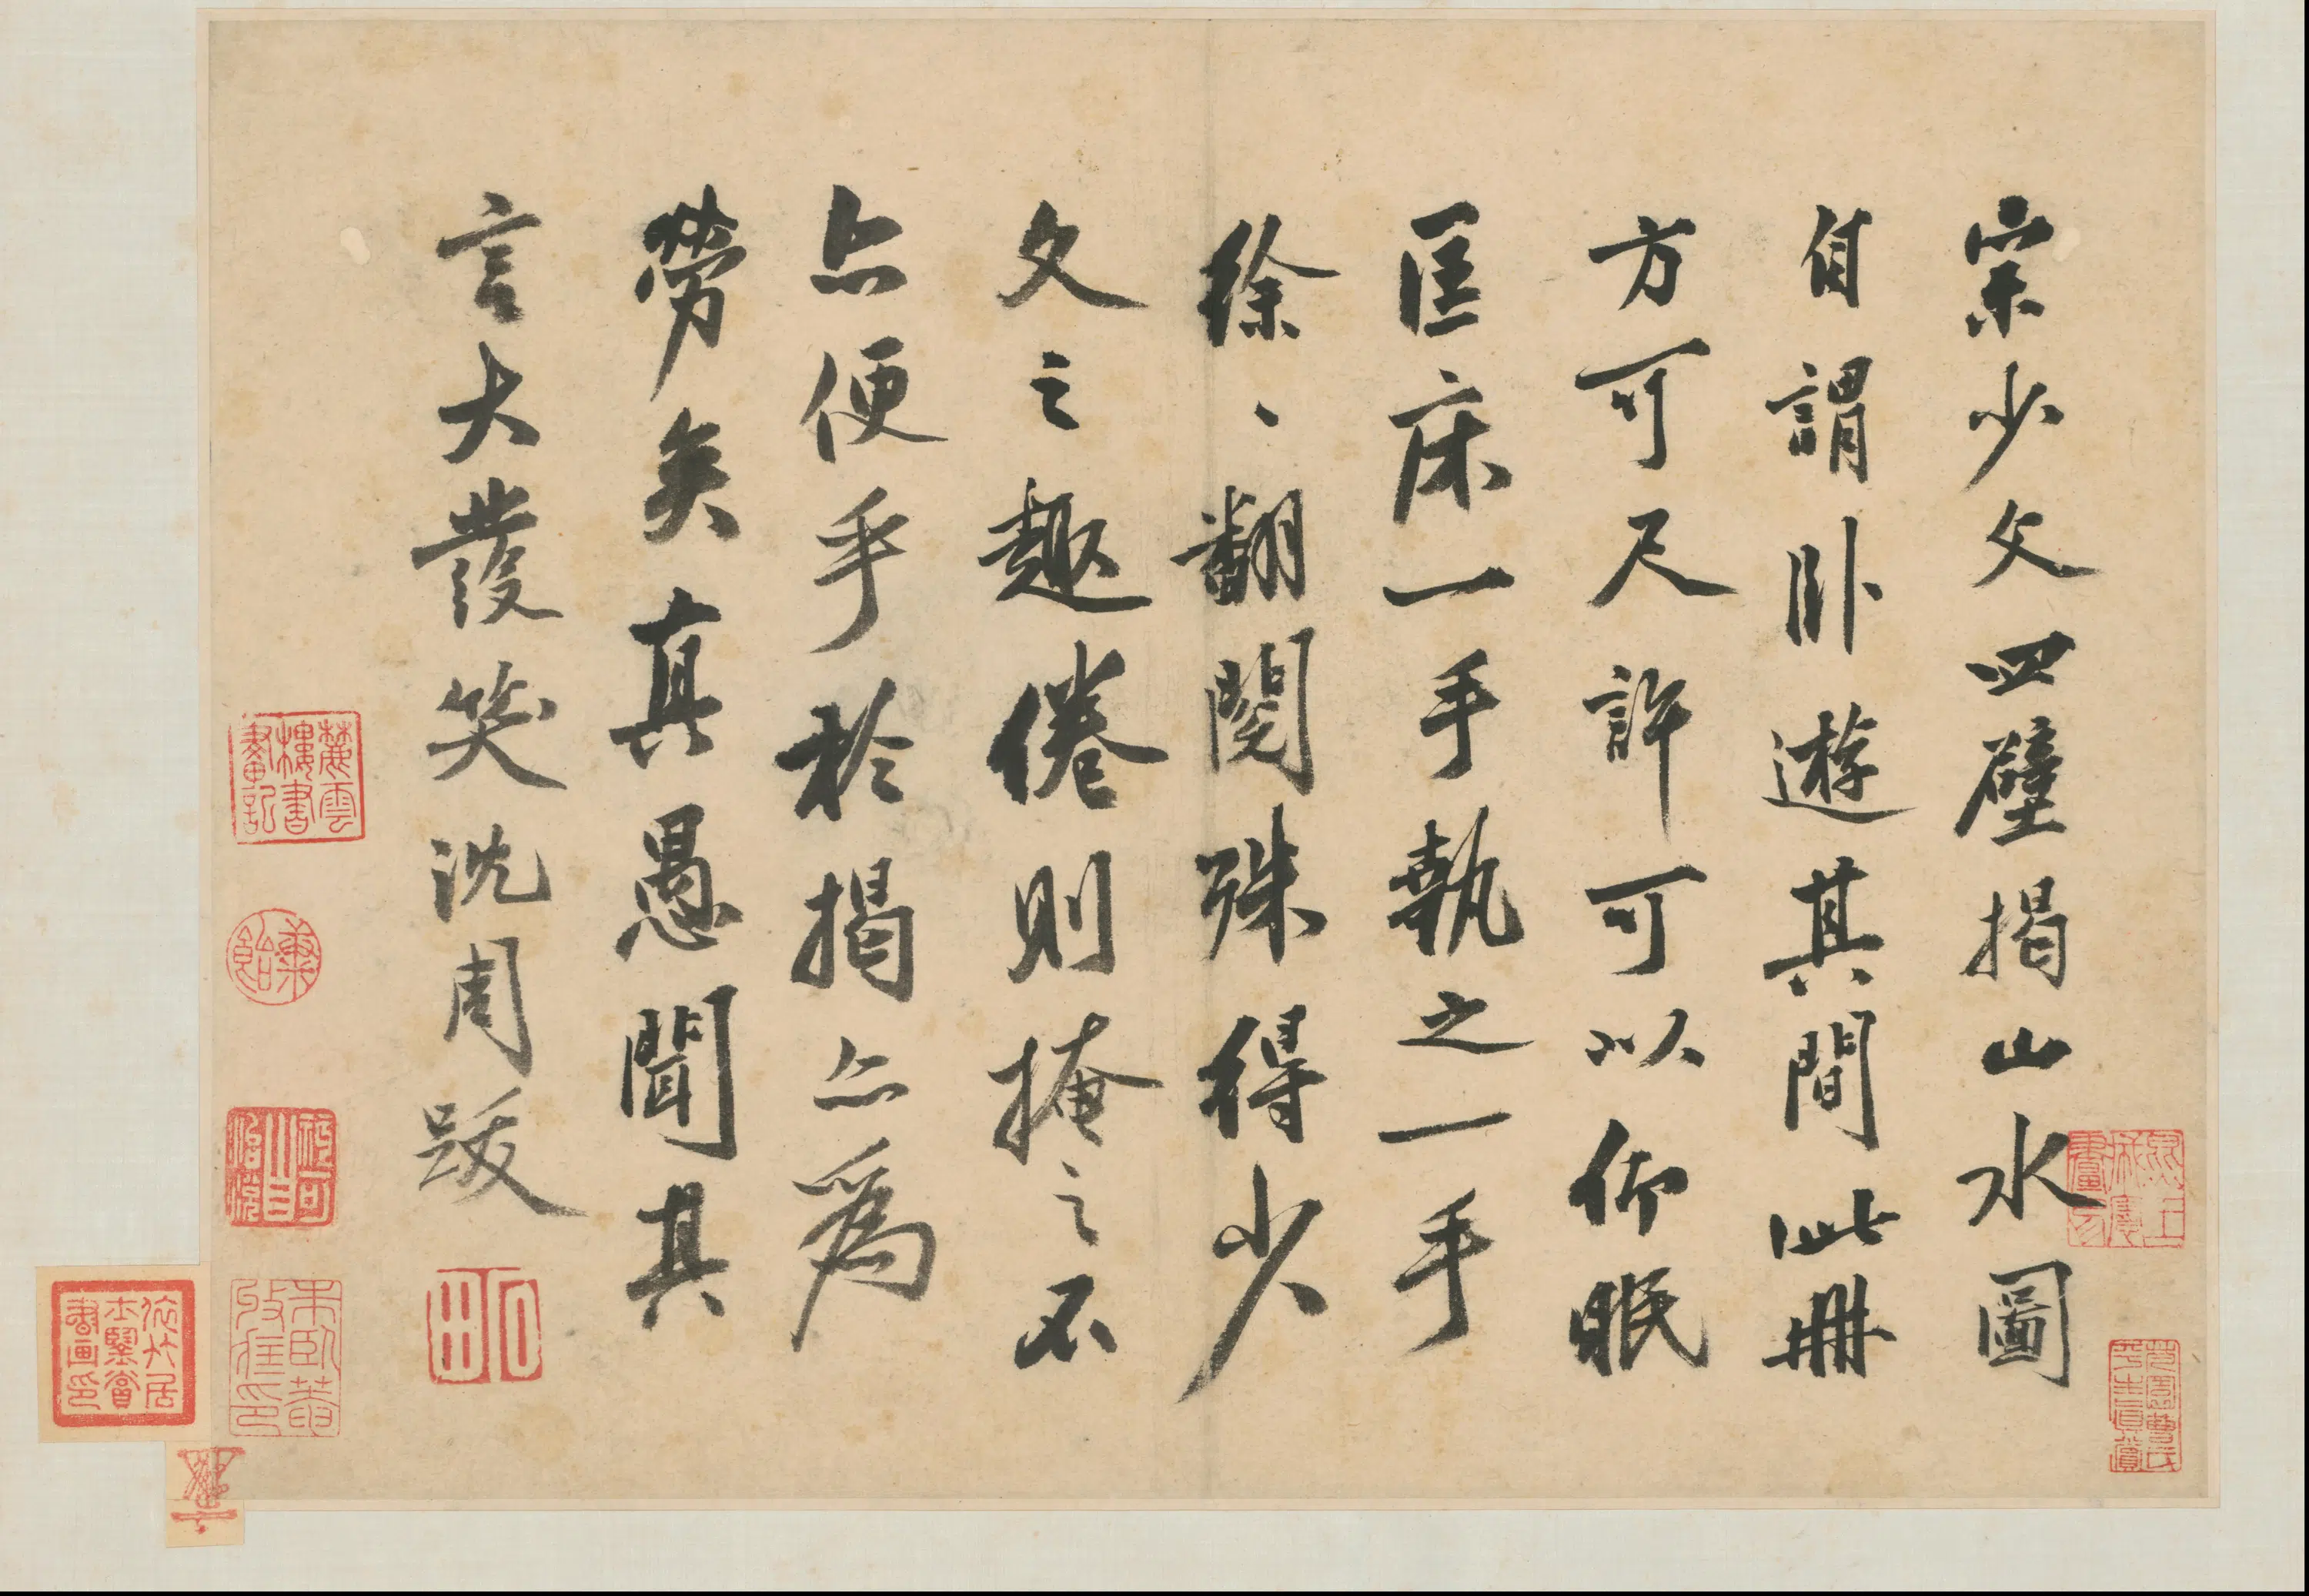 宗少文四壁揭山水圖
自謂卧遊其間此冊
方可尺許可以仰眠
匡床一手執之一手
徐、翻閱殊得少
文之趣倦則掩之不
亦便乎於揭亦為
勞矣真愚聞其
言大發笑沈周跋
石田
蘿雲樓書畫記